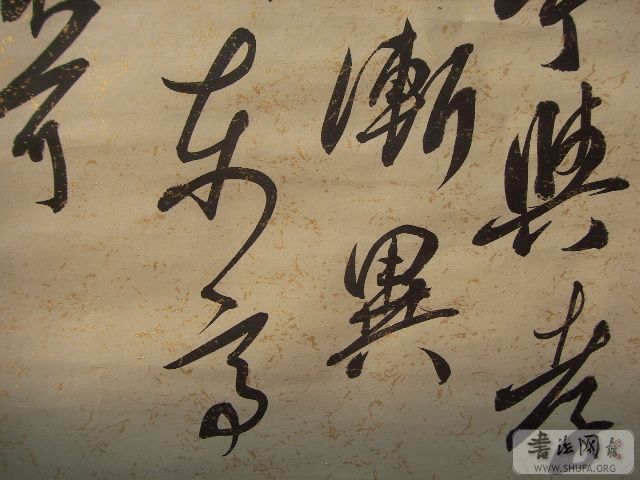 與老
漸異
东高
書法网
WWW.SHUFA.ORG